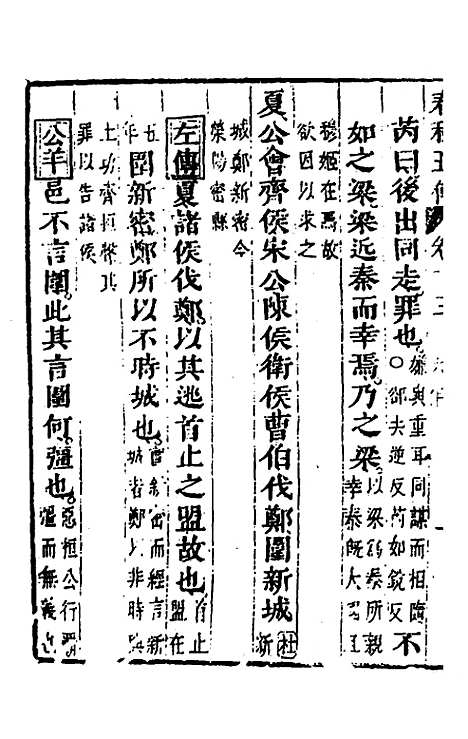 芮曰後出同走罪也○嫌與重耳同謀而相隨 郤去逆反芮如銳反不
如之梁梁近秦而幸焉乃之梁以梁為秦所親幸秦既大國
穆姬在焉故欲因以求之
夏公會齊侯宋公陳侯衛侯曹伯伐鄭圍新城杜新
城鄭新密今滎陽密縣
左傳夏諸侯伐鄭以其逃首止之盟故也首止盟在
五年圍新密鄭所以不時城也實新密而經言新城者鄭以非時興
土功齊桓聲其罪以告諸侯
公羊邑不言圍此其言圍何彊也惡桓公行霸彊而無義也